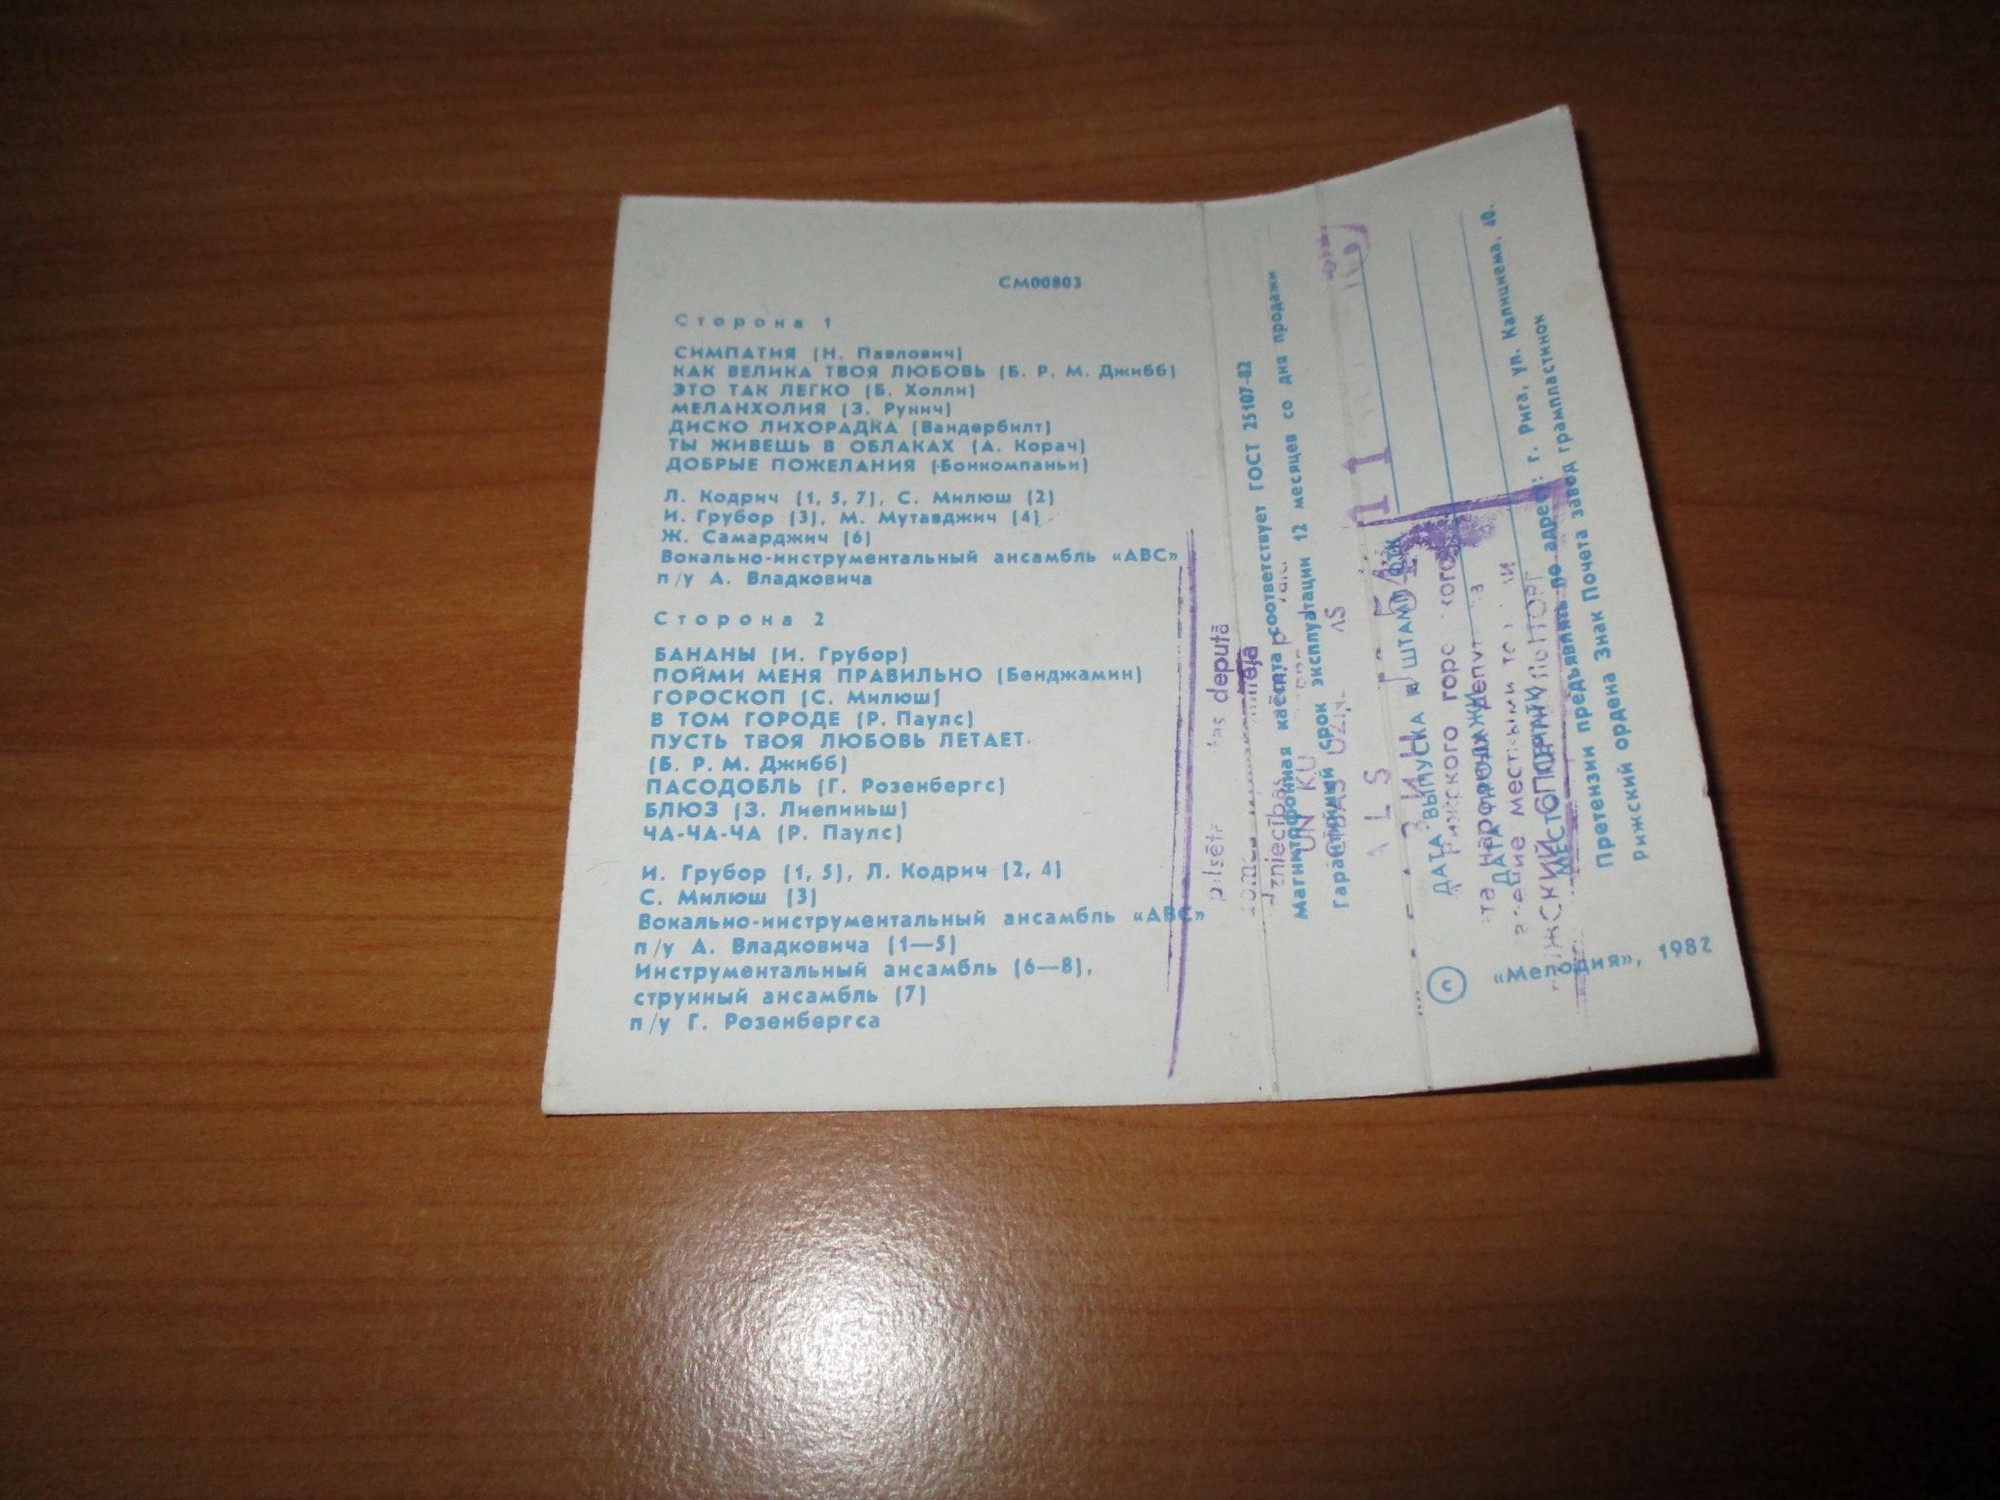 СМ00803
Сторона 1
СИМПАТИЯ (Н. Павлович)
КАК ВЕЛИКА ТВОЯ ЛЮБОВЬ (Б. Р. М. Джибб)
ЭТО ТАК ЛЕГКО (Б. Холли)
МЕЛАНХОЛИЯ (З. Рунич)
ДИСКО ЛИХОРАДКА (Вандербилт)
ТЫ ЖИВЕШЬ В ОБЛАКАХ (А. Корач)
ДОБРЫЕ ПОЖЕЛАНИЯ (Бонкомпаньи)
Л. Кодрич (1, 5, 7), С. Милюш (2)
И. Грубор (3), М. Мутавджич (4)
Ж. Самарджич (6)
Вокально-инструментальный ансамбль «АВС»
п/у А. Владковича
Сторона 2
БАНАНЫ (И. Грубор)
ПОЙМИ МЕНЯ ПРАВИЛЬНО (Бенджамин)
ГОРОСКОП (С. Милюш)
В ТОМ ГОРОДЕ (Р. Паулс)
ПУСТЬ ТВОЯ ЛЮБОВЬ ЛЕТАЕТ
(Б. Р. М. Джибб)
ПАСОДОБЛЬ (Г. Розенбергс)
БЛЮЗ (З. Лиепиньш)
ЧА-ЧА-ЧА (Р. Паулс)
И. Грубор (1, 5), Л. Кодрич (2, 4)
С. Милюш (3)
Вокально-инструментальный ансамбль «АВС»
п/у А. Владковича (1—5)
Инструментальный ансамбль (6—8),
струнный ансамбль (7)
п/у Г. Розенбергса
Магнитофонная кассета соответствует ГОСТ 25107-82
Гарантийный срок эксплуатации 12 месяцев со дня продажи
ДАТА ВЫПУСКА и ШТАМП ОТК
ДАТА ПРОДАЖИ
Претензии предъявлять по адресу: г. Рига, ул. Калнциема, 40.
Рижский ордена Знак Почета завод грампластинок
© «Мелодия», 1982